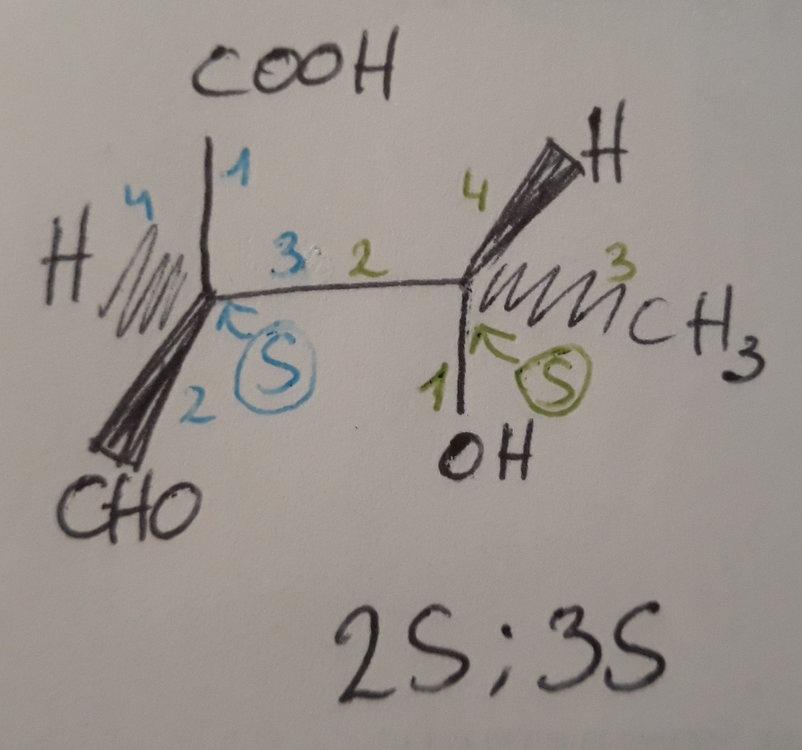 COOH
H
4
1
4
H
3
2
3
CH3
S
1
S
2
OH
CHO
2S; 3S